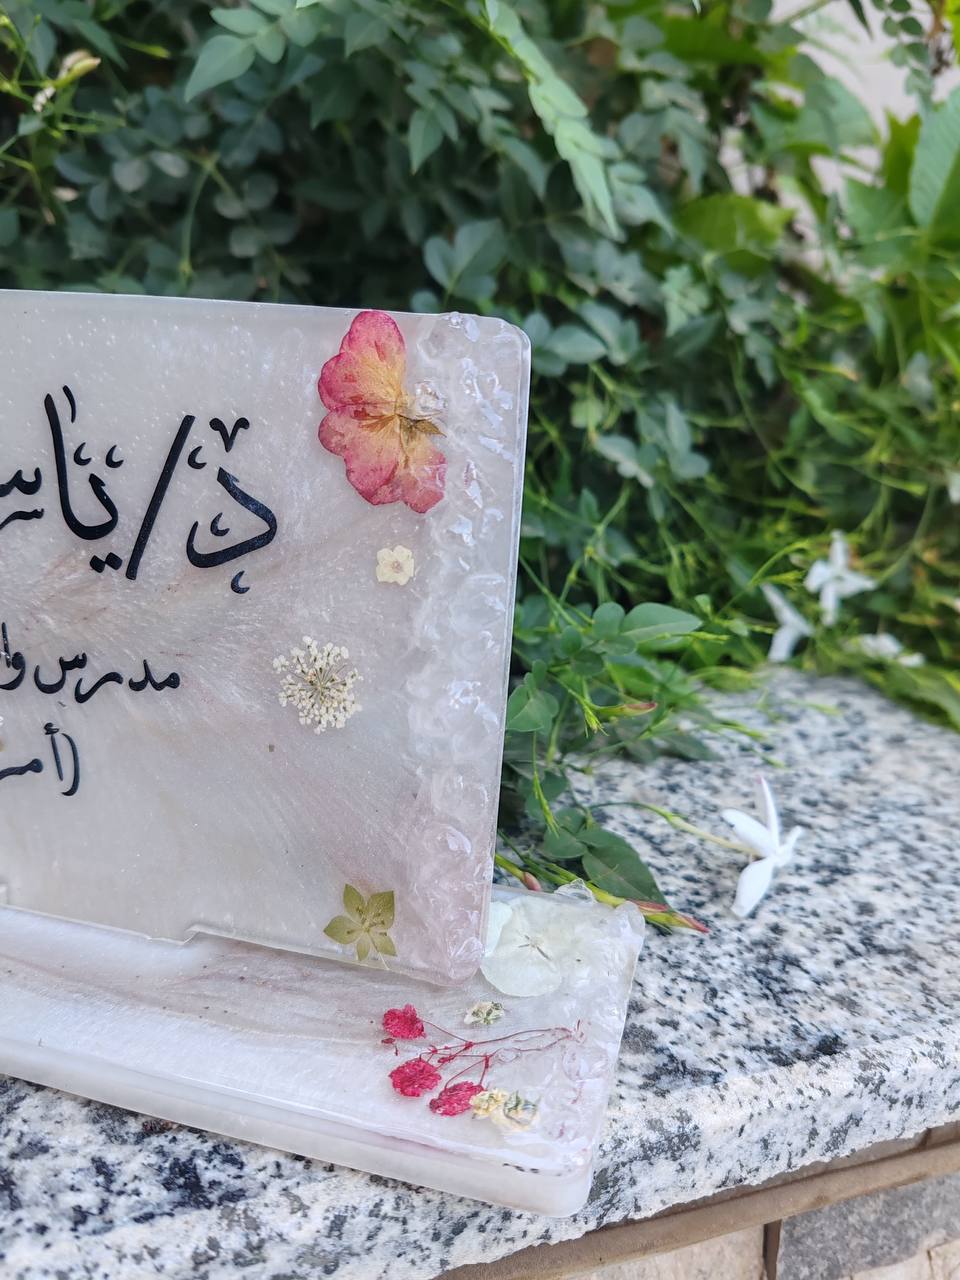 د/ياس
مدرس وا
(أمر